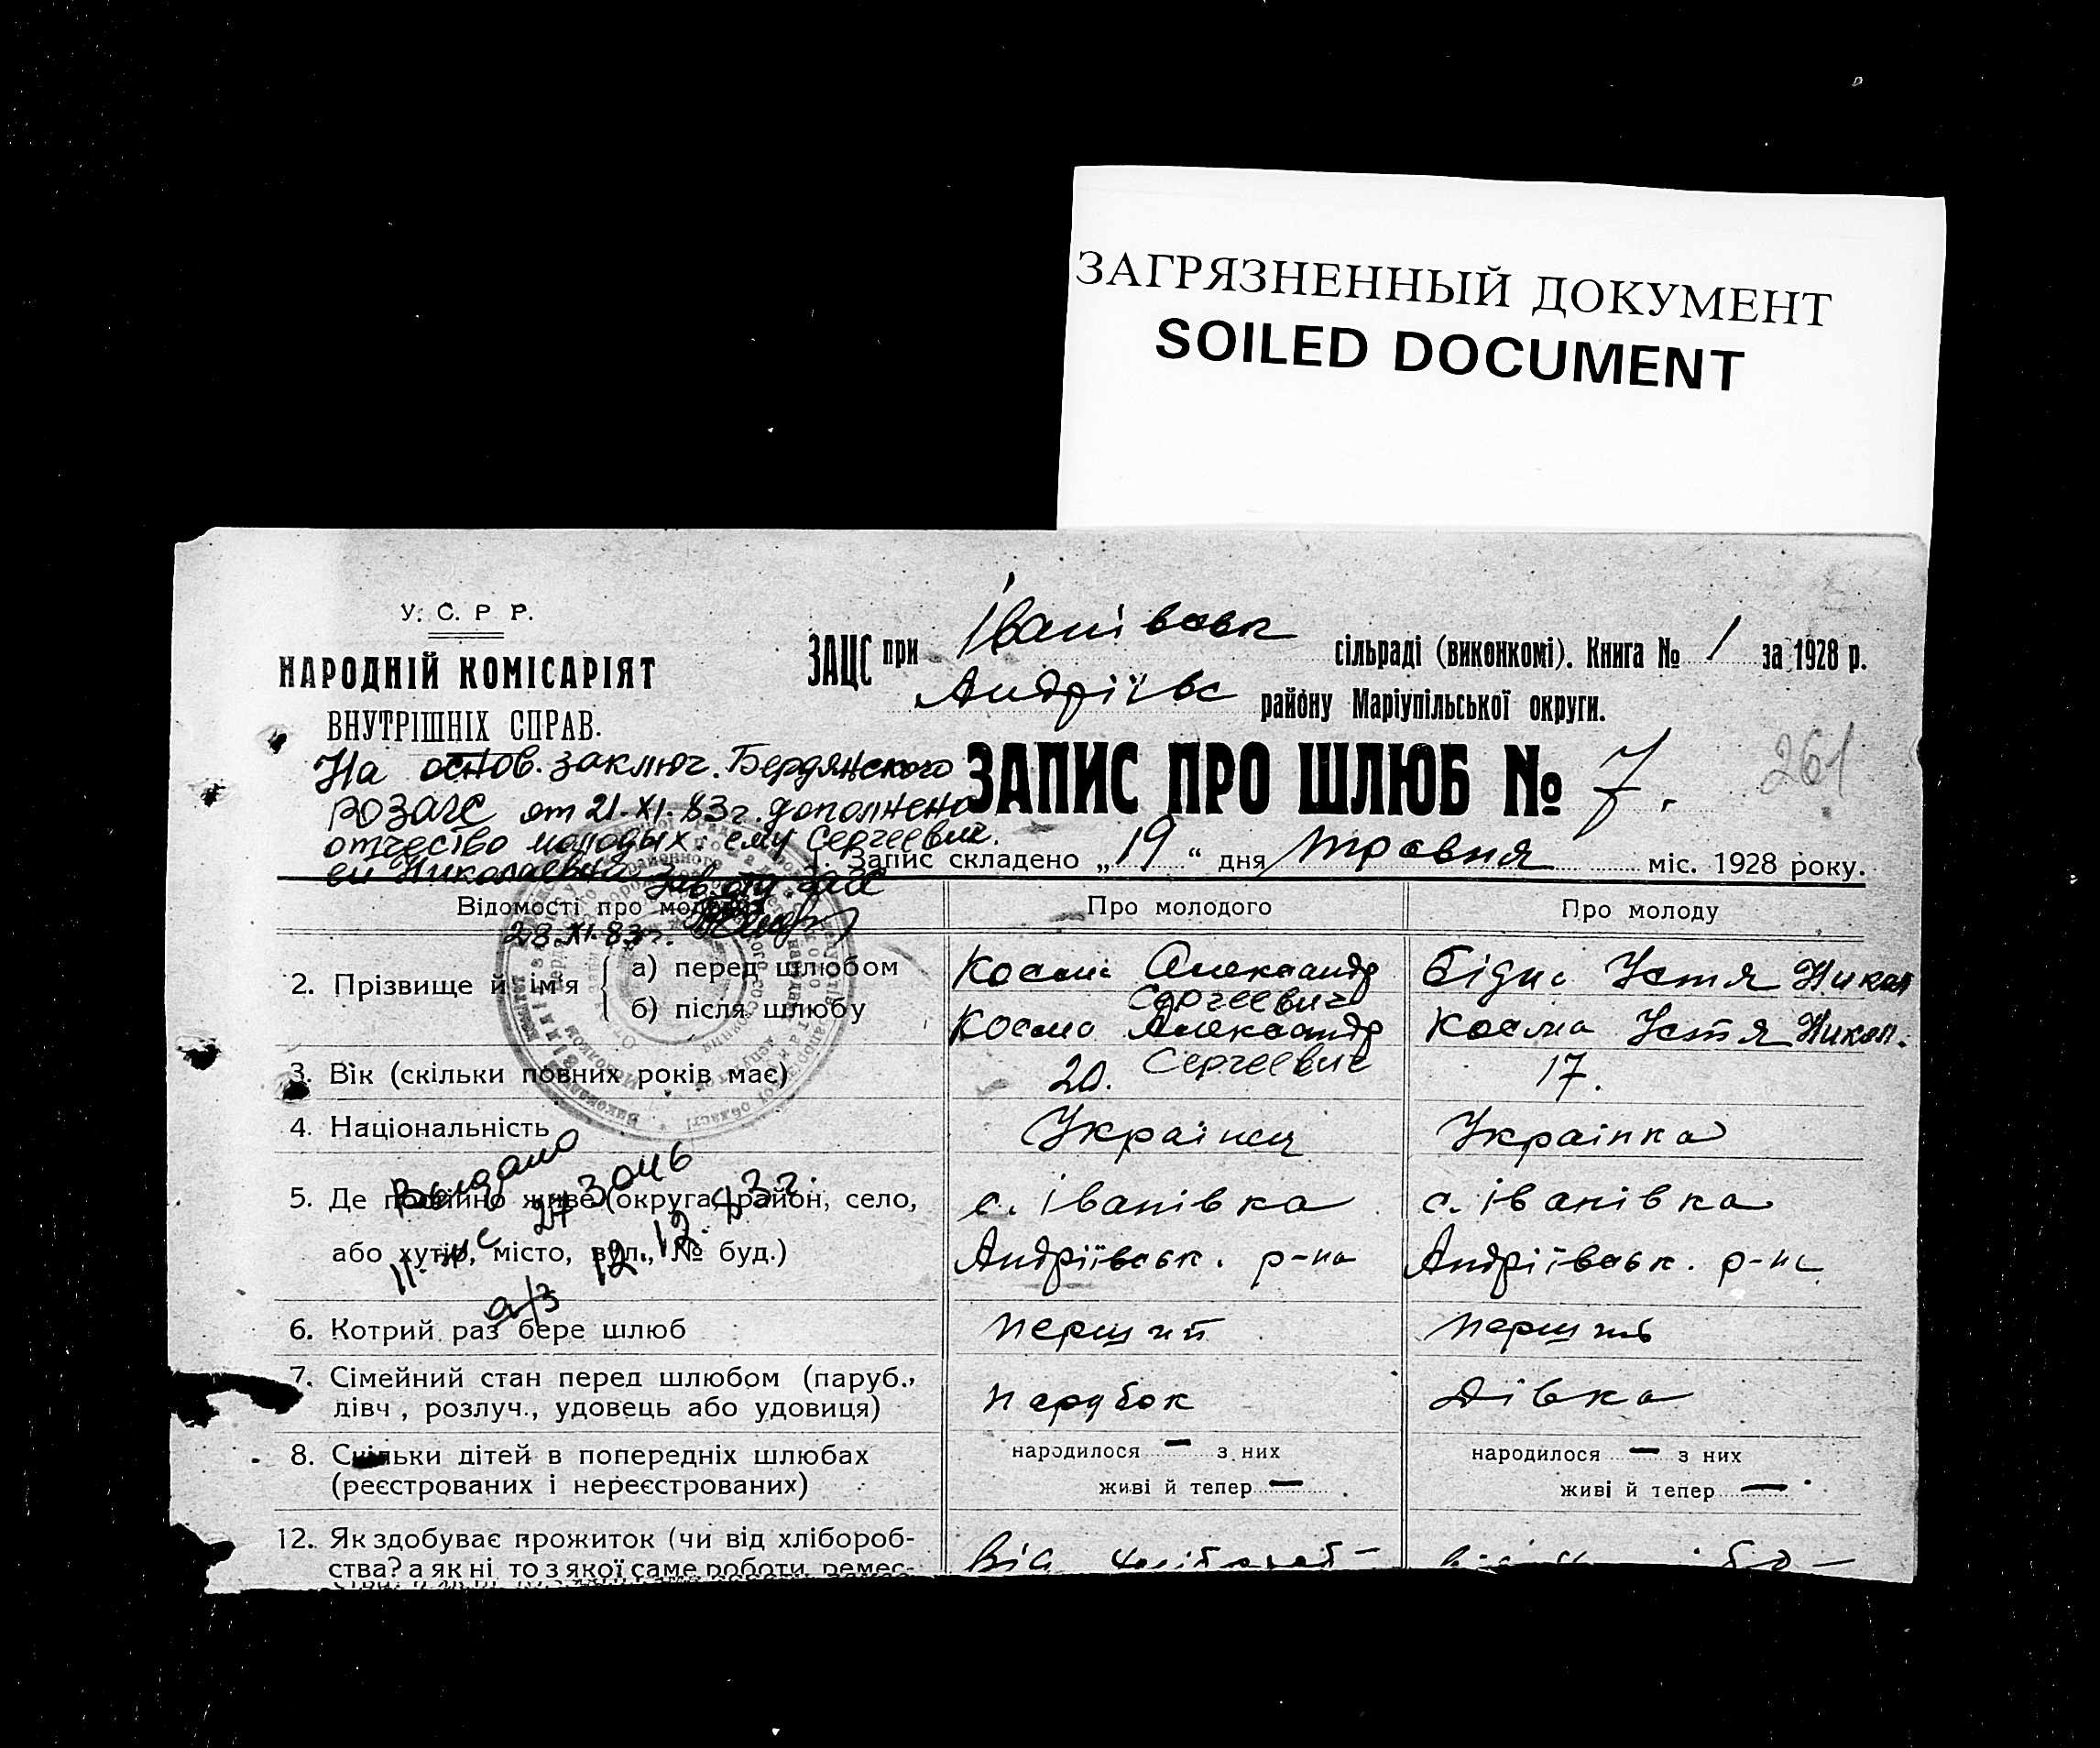 ЗАГРЯЗНЕННЫЙ ДОКУМЕНТ
SOILED DOCUMENT
У. С. Р. Р.
НАРОДНІЙ КОМІСАРІЯТ
ВНУТРІШНІХ СПРАВ.
ЗАЦС при Іванівськ сільраді (виконкомі). Книга № 1 за 1928 р.
Андріївс району Маріупільської округи.
ЗАПИС ПРО ШЛЮБ № 7.
261
На основ. заключ. Бердянского
РОЗАГС от 21.XI.83г. дополнено
отчество молодых: ему Сергеевич.
ей Николаевна
Зав. отд ЗАГС
28.XI.83г.
1. Запис складено „19“ дня травня міс. 1928 року.
Відомості про молодих
Про молодого
Про молоду
2. Прізвище й ім'я
а) перед шлюбом
Косма Александр Сергеевич
Бідна Устя Никол
б) після шлюбу
Косма Александр Сергеевич
Косма Устя Никол.
3. Вік (скільки повних років має)
20.
17.
4. Національність
Українец
Українка
5. Де постійно живе (округа, район, село,
або хутір, місто, вул., № буд.)
с. Іванівка
Андріївськ. р-на
с. Іванівка
Андріївськ. р-на
Выдано
6. Котрий раз бере шлюб
перший
перший
7. Сімейний стан перед шлюбом (паруб.,
дівч., розлуч., удовець або удовиця)
парубок
дівка
8. Скільки дітей в попередніх шлюбах
(реєстрованих і нереєстрованих)
народилося — з них
живі й тепер —
народилося — з них
живі й тепер —
12. Як здобуває прожиток (чи від хлібороб-
ства? а як ні то з якої саме роботи, ремес-
Від